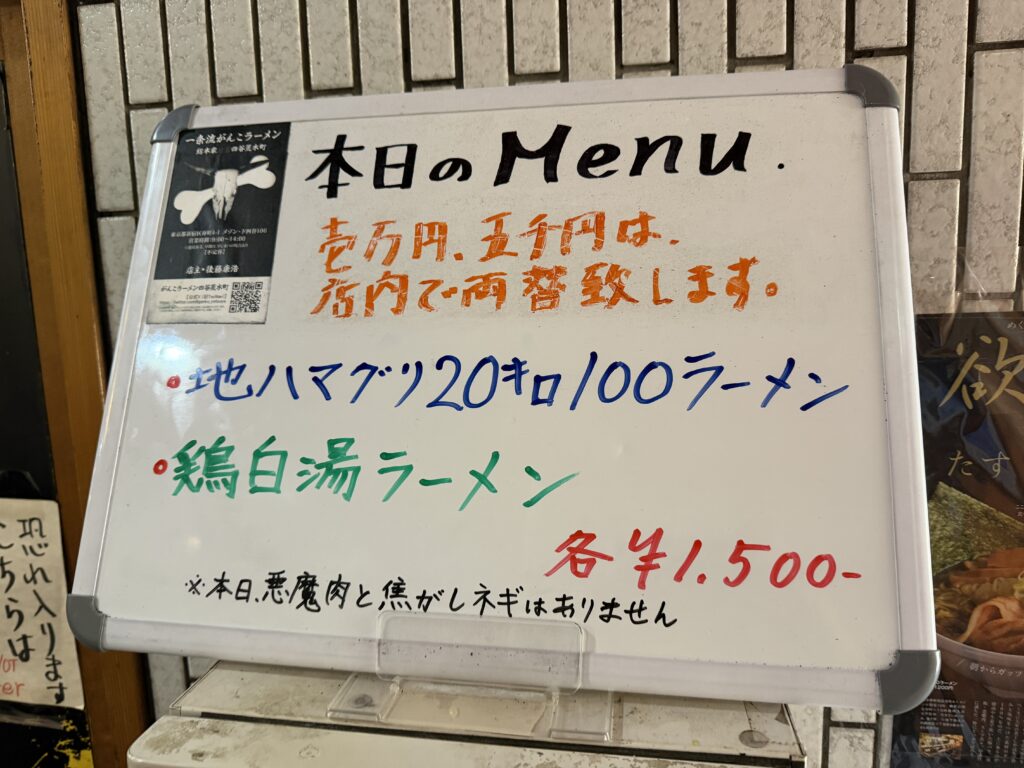 一条流がんこラーメン
総本家 四谷荒木町
営業時間:9:00~14:00
店主・後藤康浩
がんこラーメン四谷荒木町
本日のMenu.
壱万円、五千円は、
店内で両替致します。
・地ハマグリ20キロ100ラーメン
・鶏白湯ラーメン
各¥1.500-
※本日、悪魔肉と焦がしネギはありません
恐れ入ります
こちらは
欲
たす